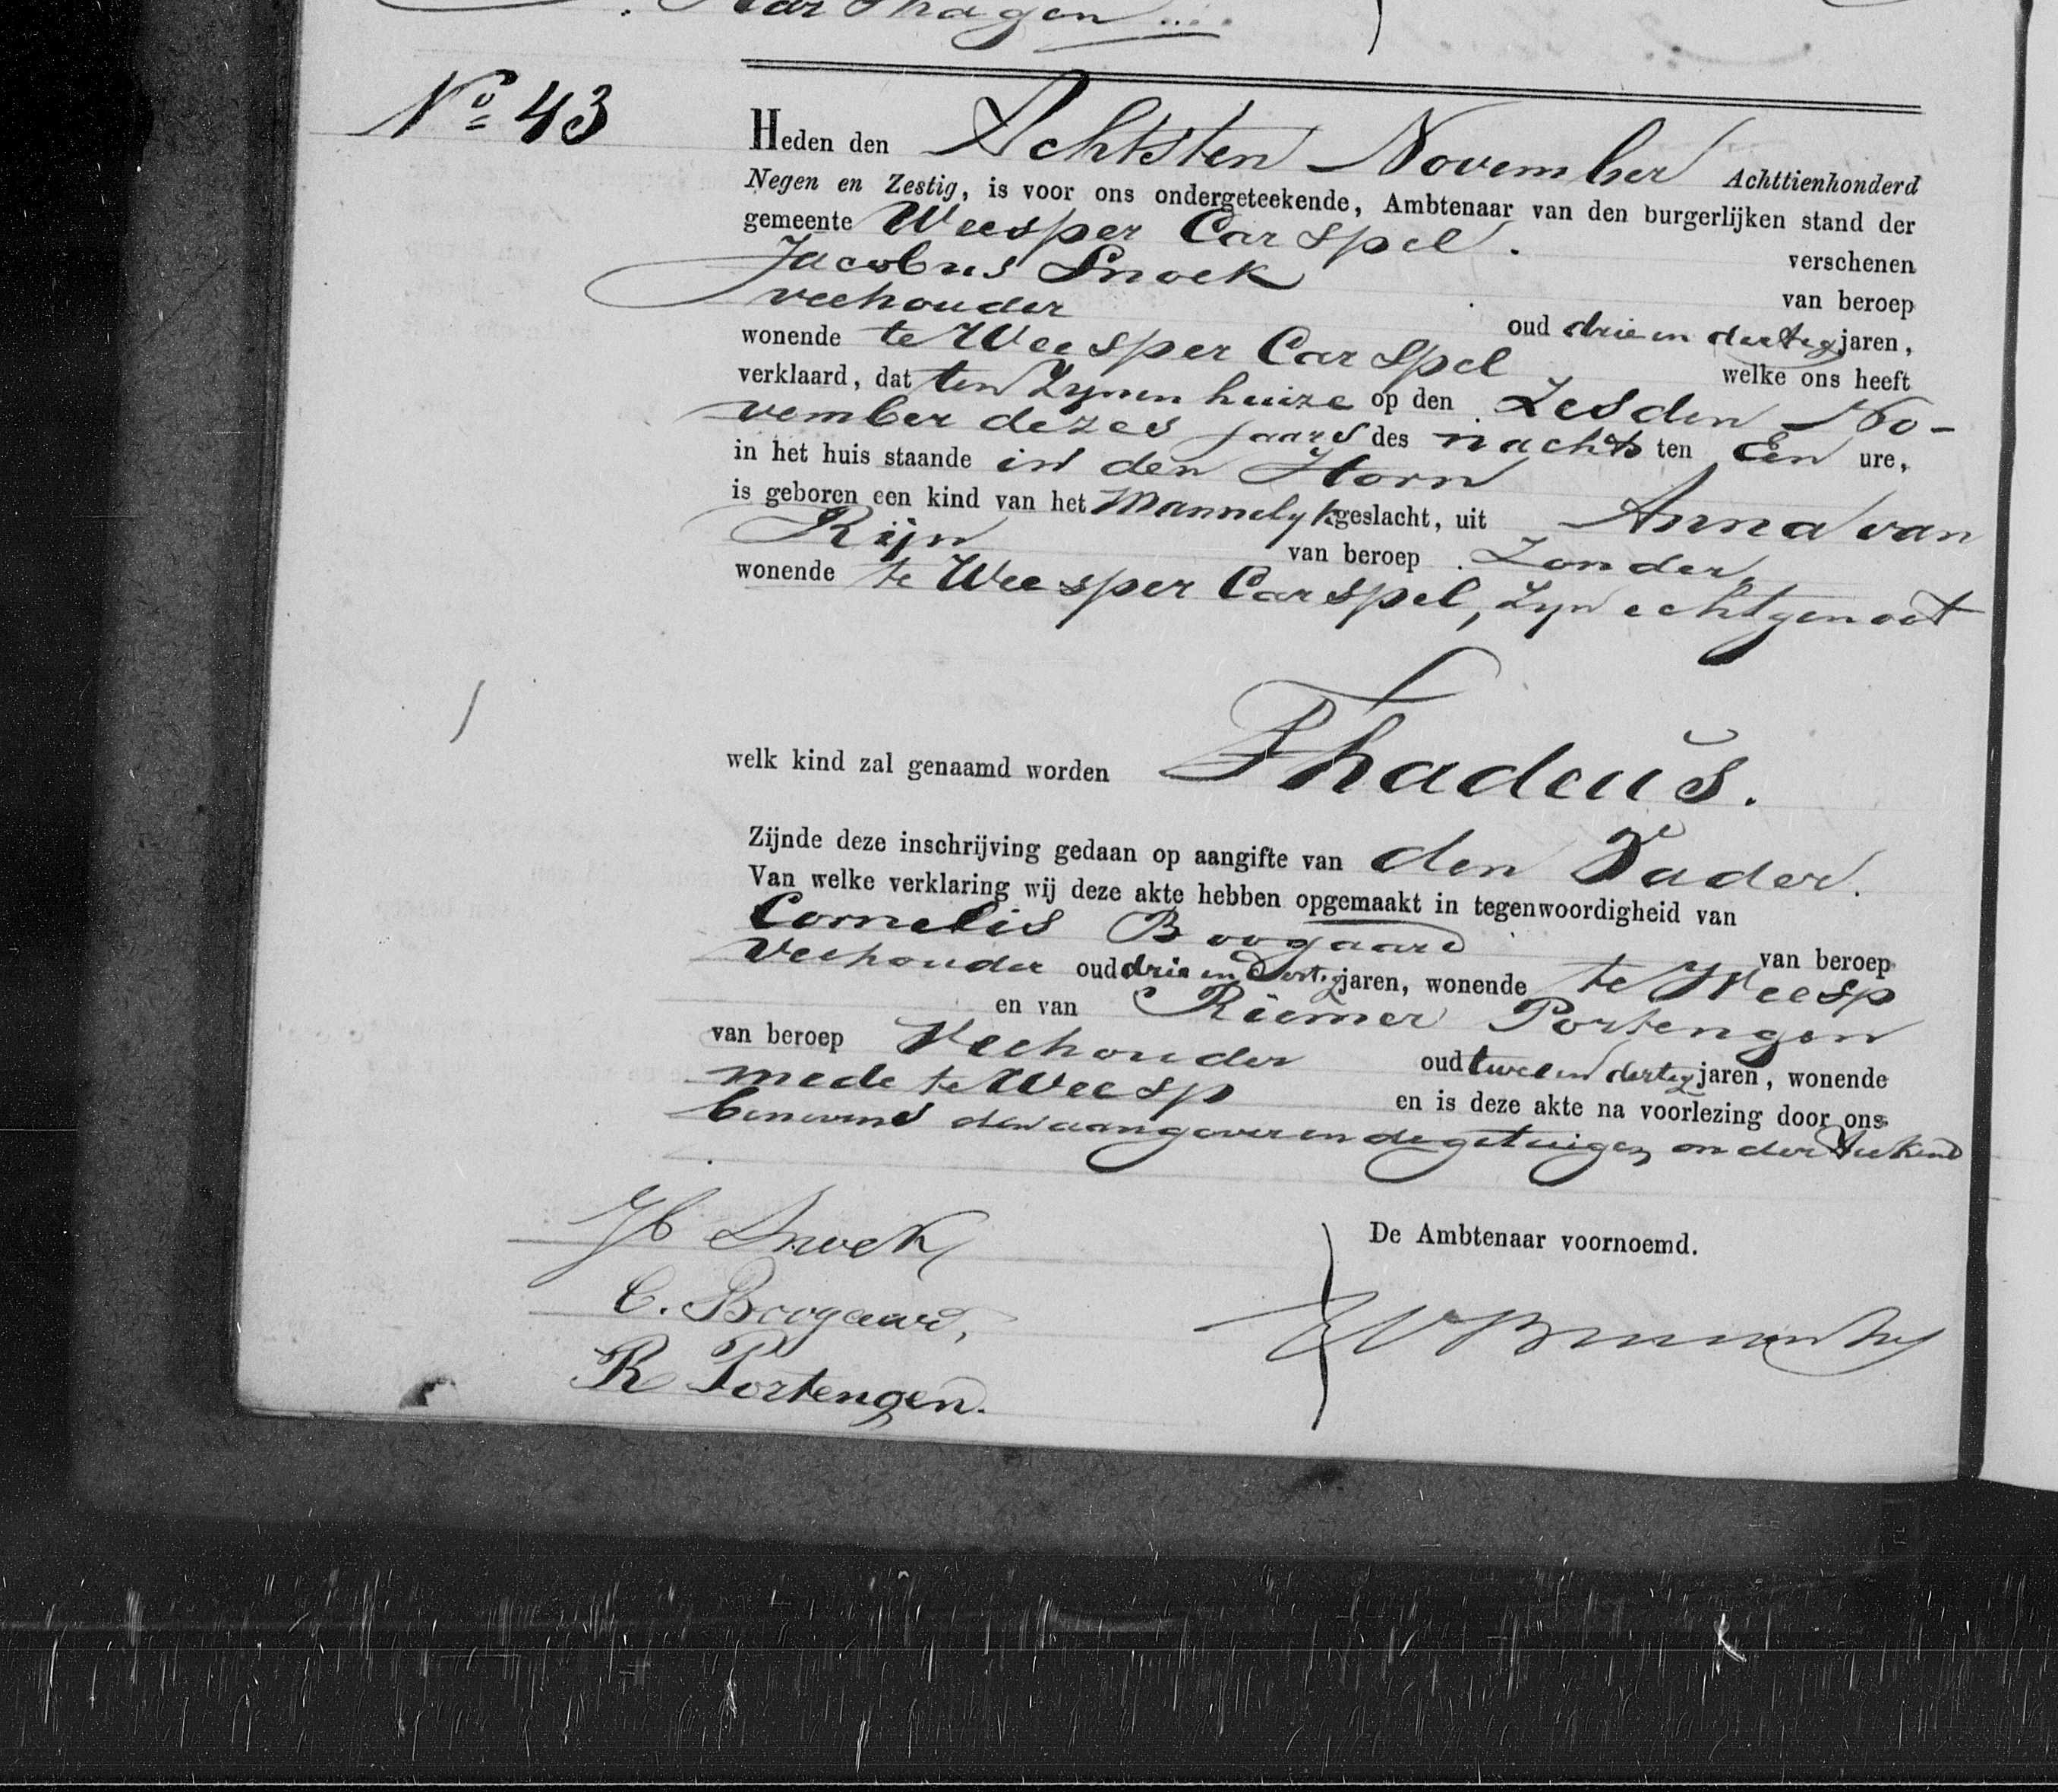 Nº 43
Heden den Achtsten November Achttienhonderd
Negen en Zestig, is voor ons ondergeteekende, Ambtenaar van den burgerlijken stand der
gemeente Weesper Carspel. verschenen
Jacobus Snoek van beroep
veehouder oud drie en dertig jaren,
wonende te Weesper Carspel welke ons heeft
verklaard, dat ten Zynen huize op den Zesden No-
vember dezes jaars des nachts ten Een ure,
in het huis staande in den Horn
is geboren een kind van het Mannelyk geslacht, uit Anna van
Rijn van beroep Zonder,
wonende te Weesper Carspel, Zyn echtgenoot
welk kind zal genaamd worden Thadeus.
Zijnde deze inschrijving gedaan op aangifte van den Vader.
Van welke verklaring wij deze akte hebben opgemaakt in tegenwoordigheid van
Cornelis Boogaard van beroep
Veehouder oud drie en dertig jaren, wonende te Weesp
en van Riemer Portengen
van beroep Veehouder oud twee en dertig jaren, wonende
mede te Weesp en is deze akte na voorlezing door ons
benevens den aangever en de getuigen onderteekend
De Ambtenaar voornoemd.
Snoek
C. Boogaard,
R Portengen.